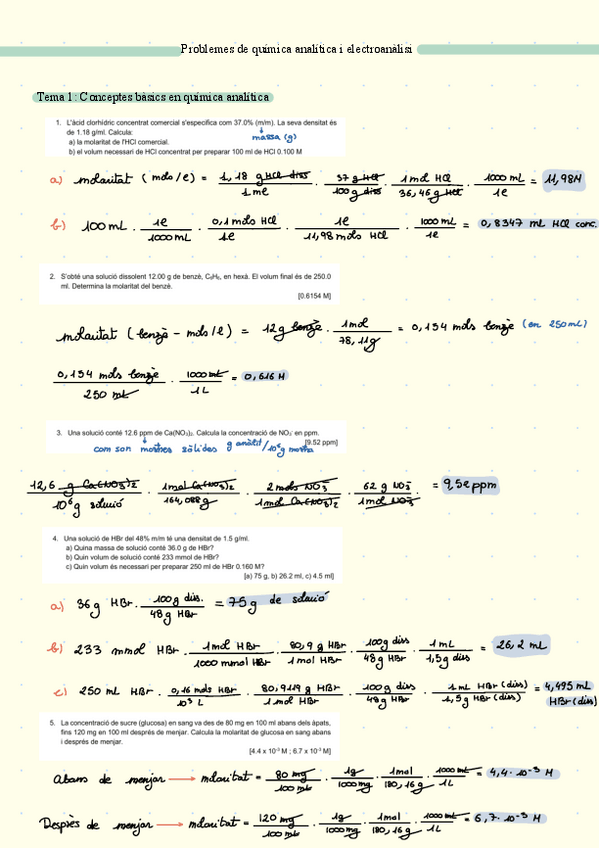 Problemes de química analítica i electroanàlisi
Tema 1: Conceptes bàsics en química analítica
1. L'àcid clorhídric concentrat comercial s'especifica com 37.0% (m/m). La seva densitat és
de 1.18 g/ml. Calcula:
massa (g)
a) la molaritat de l'HCl comercial.
b) el volum necessari de HCl concentrat per preparar 100 ml de HCl 0.100 M
a) molaritat (mols/l) = 1,18 g HCl diss / 1 ml · 37 g HCl / 100 g diss · 1 mol HCl / 36,46 g HCl · 1000 mL / 1l = 11,98M
b) 100 mL · 1l / 1000 mL · 0,1 mols HCl / 1l · 1l / 11,98 mols HCl · 1000 mL / 1l = 0,8347 mL HCl conc.
2. S'obté una solució dissolent 12.00 g de benzè, C₆H₆, en hexà. El volum final és de 250.0
ml. Determina la molaritat del benzè.
[0.6154 M]
molaritat (benzè - mols/l) = 12 g benzè · 1 mol / 78,11g = 0,154 mols benzè (en 250 mL)
0,154 mols benzè / 250 mL · 1000 mL / 1L = 0,616 M
3. Una solució conté 12.6 ppm de Ca(NO₃)₂. Calcula la concentració de NO₃⁻ en ppm.
[9.52 ppm]
com son mostres sòlides g anàlit/10⁶g mostra
12,6 g Ca(NO₃)₂ / 10⁶ g solució · 1 mol Ca(NO₃)₂ / 164,088 g · 2 mols NO₃⁻ / 1 mol Ca(NO₃)₂ · 62 g NO₃⁻ / 1 mol NO₃⁻ = 9,52 ppm
4. Una solució de HBr del 48% m/m té una densitat de 1.5 g/ml.
a) Quina massa de solució conté 36.0 g de HBr?
b) Quin volum de solució conté 233 mmol de HBr?
c) Quin volum és necessari per preparar 250 ml de HBr 0.160 M?
[a) 75 g, b) 26.2 ml, c) 4.5 ml]
a) 36 g HBr · 100 g dis. / 48 g HBr = 75 g de solució
b) 233 mmol HBr · 1 mol HBr / 1000 mmol HBr · 80,9 g HBr / 1 mol HBr · 100 g diss / 48 g HBr · 1 mL / 1,5 g diss = 26,2 mL
c) 250 mL HBr · 0,16 mols HBr / 10³ L · 80,9119 g HBr / 1 mol HBr · 100 g diss / 48 g HBr · 1 mL HBr (diss) / 1,5 g HBr (diss) = 4,495 mL HBr (diss)
5. La concentració de sucre (glucosa) en sang va des de 80 mg en 100 ml abans dels àpats,
fins 120 mg en 100 ml després de menjar. Calcula la molaritat de glucosa en sang abans
i després de menjar.
[4.4 x 10⁻³ M ; 6.7 x 10⁻³ M]
Abans de menjar → molaritat = 80 mg / 100 mL · 1g / 1000 mg · 1 mol / 180,16 g · 1000 mL / 1L = 4,4 · 10⁻³ M
Desprès de menjar → molaritat = 120 mg / 100 mL · 1g / 1000 mg · 1 mol / 180,16 g · 1000 mL / 1L = 6,7 · 10⁻³ M